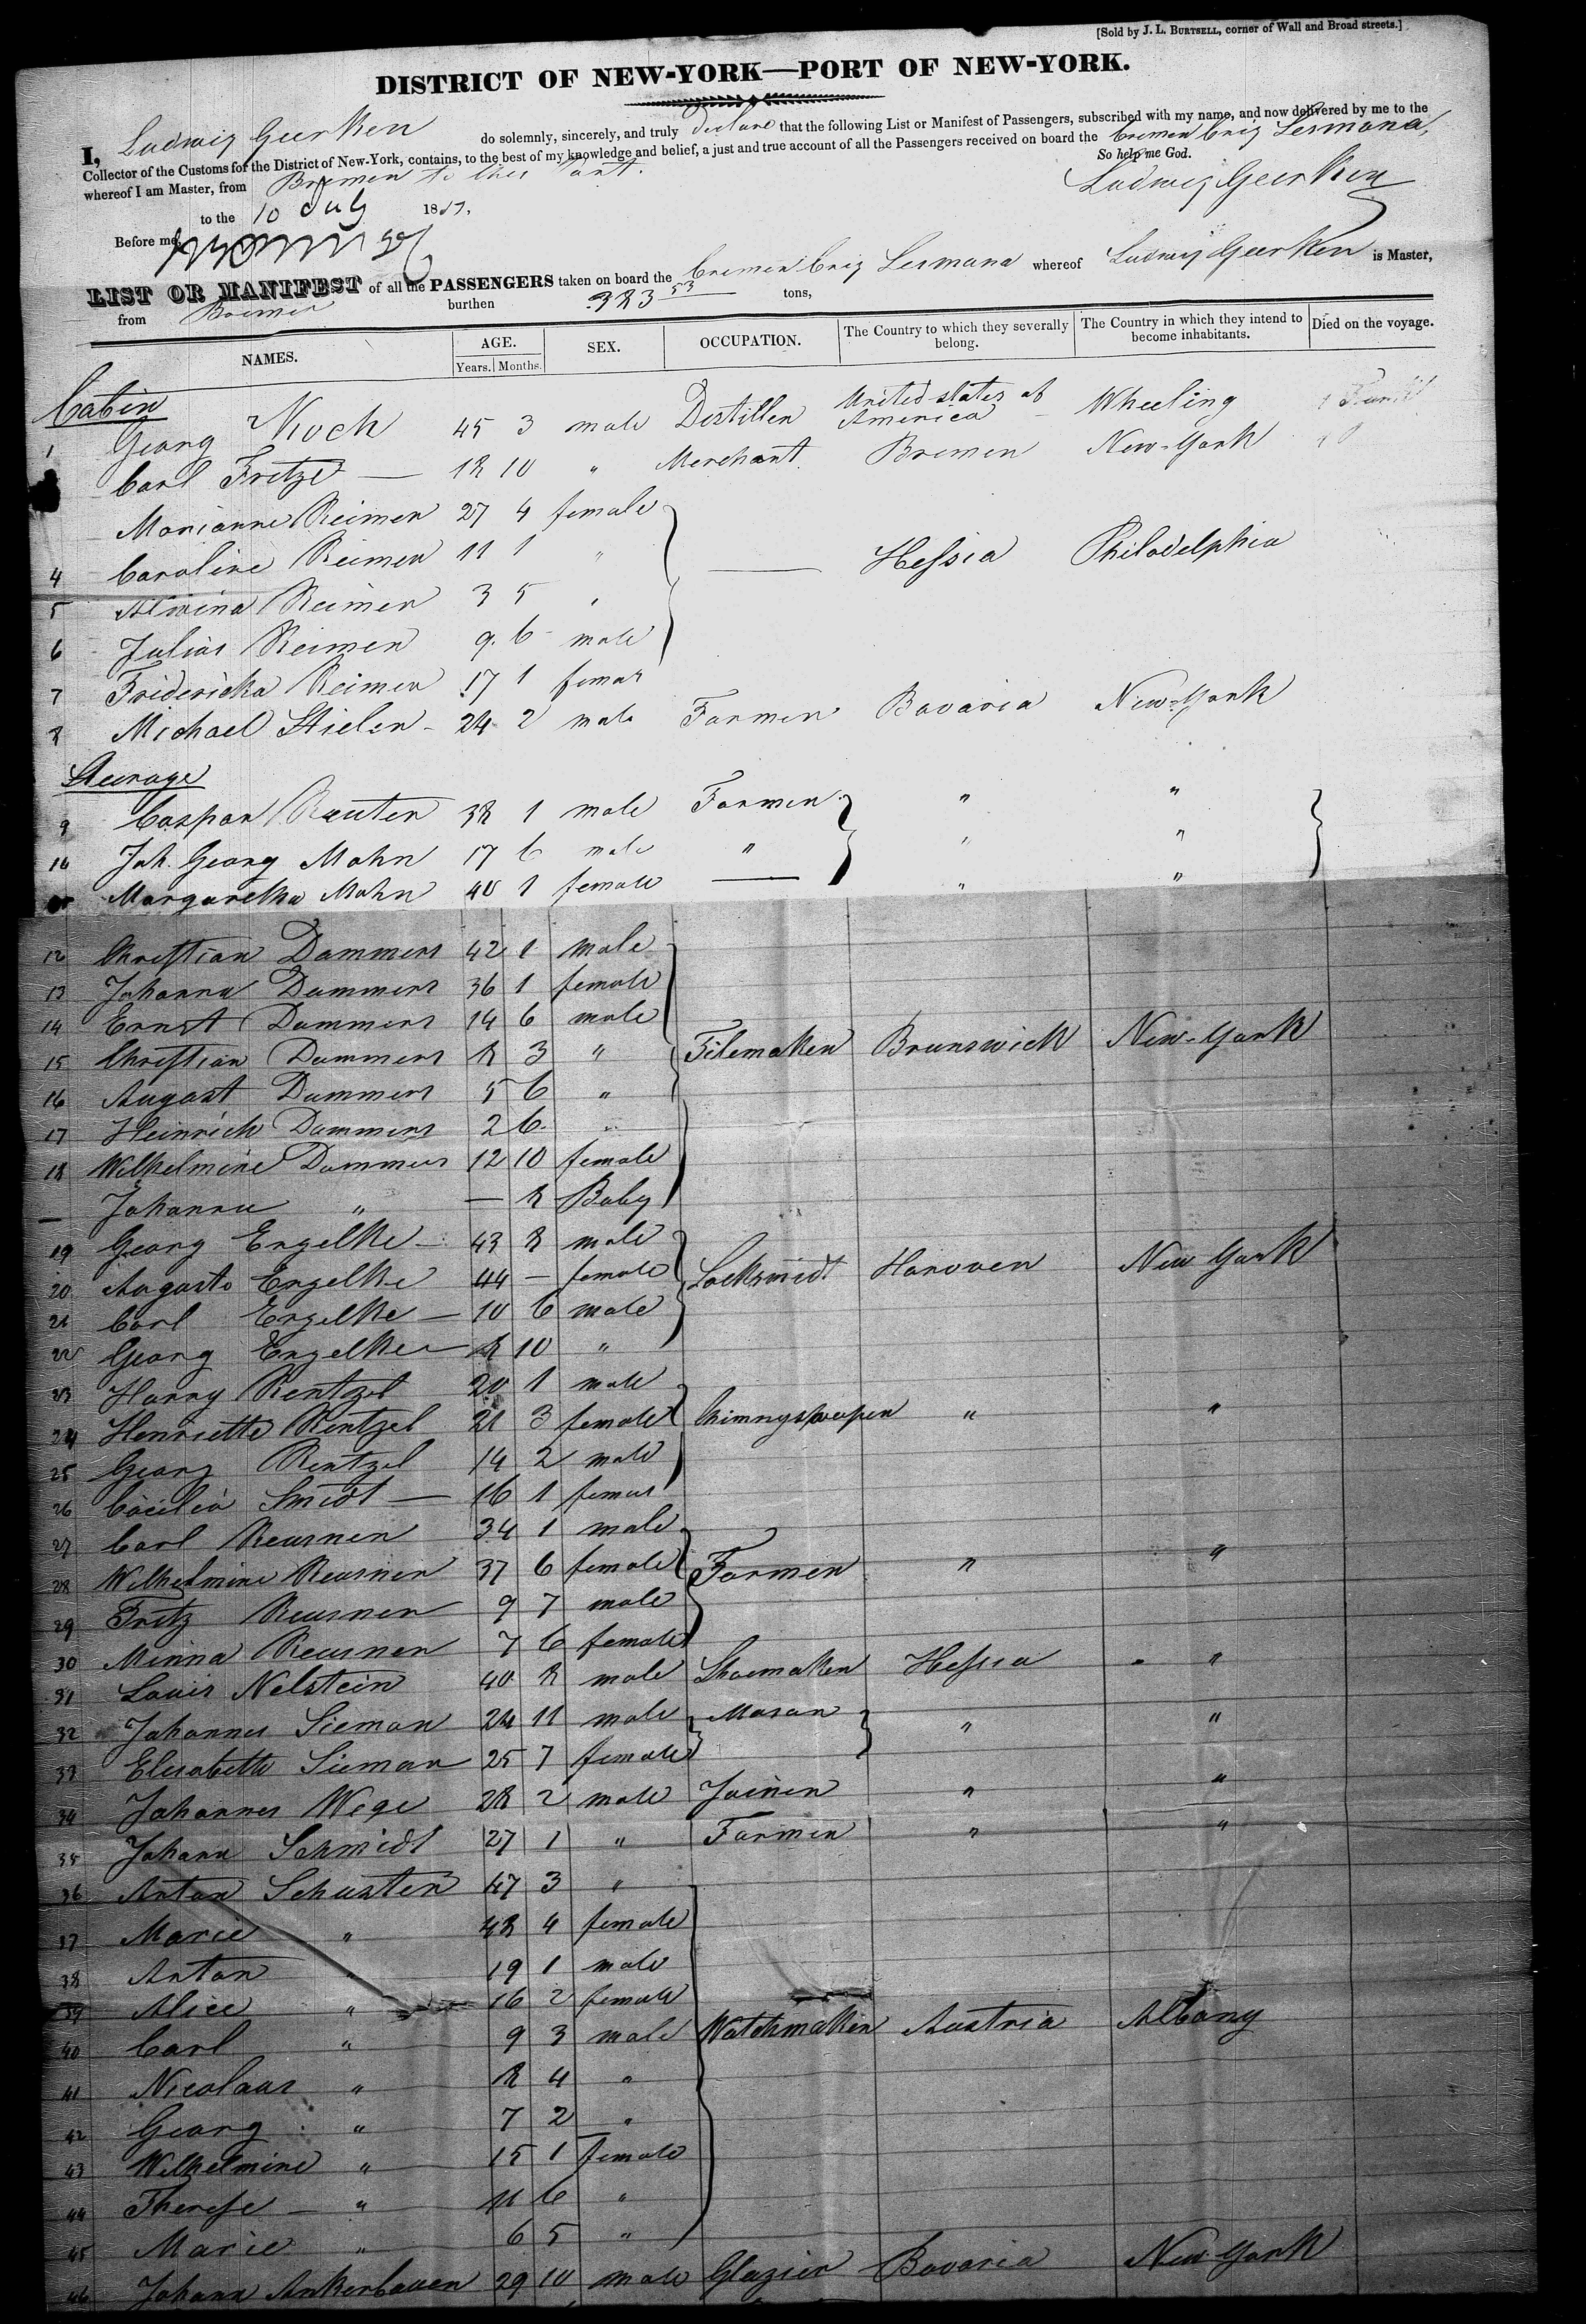 [Sold by J. L. BURTSELL, corner of Wall and Broad streets.]
DISTRICT OF NEW-YORK—PORT OF NEW-YORK.
I, Ludwig Geerken do solemnly, sincerely, and truly declare that the following List or Manifest of Passengers, subscribed with my name, and now delivered by me to the
Collector of the Customs for the District of New-York, contains, to the best of my knowledge and belief, a just and true account of all the Passengers received on board the bremen brig Lesmona,
whereof I am Master, from Bremen to this Port. So help me God.
to the 10 July 18 Ludwig Geerken
Before me,
LIST OR MANIFEST of all the PASSENGERS taken on board the bremen brig Lesmona whereof Ludwig Geerken is Master,
from Bremen burthen 383 53 tons,
NAMES. AGE. SEX. OCCUPATION. The Country to which they severally belong. The Country in which they intend to become inhabitants. Died on the voyage.
Years. Months.
Cabin
1 Georg Koch 45 3 male Distiller United states of America Wheeling
Carl Fritze — 18 10 " Merchant Bremen New-York
Marianne Reimer 27 4 female
4 Caroline Reimer 11 1 " — Hessia Philadelphia
5 Alwina Reimer 3 5 "
6 Julius Reimer 9 6 male
7 Fridericka Reimer 17 1 female
8 Michael Stieler - 24 2 male Farmer Bavaria New-York
Steerage
9 Caspar Reuter 38 1 male Farmer " "
10 Joh. Georg Mohn 17 6 male " " "
Margaretha Mohn 40 1 female — " "
12 Christian Dammers 42 1 male
13 Johanna Dammers 36 1 female
14 Ernst Dammers 14 6 male
15 Christian Dammers 8 3 " Filemaker Brunswick New-York
16 August Dammers 5 6 "
17 Heinrich Dammers 2 6 "
18 Wilhelmine Dammers 12 10 female
— Johanna " — 8 Baby
19 Georg Engelke - 43 8 male
20 Auguste Engelke 44 — female Locksmidt Hanover New York
21 Carl Engelke — 10 6 male
22 Georg Engelke — 8 10 "
23 Harry Rentzel 20 1 male
24 Henriette Rentzel 21 3 female Chimnysweeper " "
25 Georg Rentzel 14 2 male
26 Cäcilia Smidt — 16 1 female
27 Carl Reusner 34 1 male
28 Wilhelmine Reusner 37 6 female Farmer " "
29 Fritz Reusner 9 7 male
30 Minna Reusner 7 6 female
31 Louis Nelstein 40 8 male Shoemaker Hessia "
32 Johannes Sieman 24 11 male Mason " "
33 Elisabetth Sieman 25 7 female
34 Johannes Wege 28 2 male Joiner " "
35 Johann Schmidt 27 1 " Farmer " "
36 Anton Schuster 47 3 "
37 Marie " 48 4 female
38 Anton " 19 1 male
39 Alice " 16 2 female
40 Carl " 9 3 male Watchmaker Austria Albany
41 Nicolaus " 8 4 "
42 Georg " 7 2 "
43 Wilhelmine " 15 1 female
44 Therese — " 11 6 "
45 Marie " 6 5 "
46 Johann Ankerbauer 29 10 male Glazier Bavaria New-York